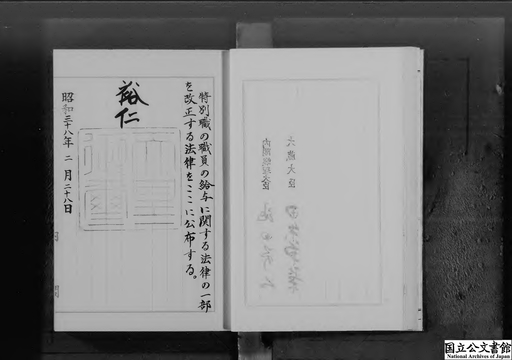 特別職の職員の給与に関する法律の一部
を改正する法律をここに公布する。
裕仁
昭和三十八年二月二十八日
大蔵大臣
内閣総理大臣
国立公文書館
National Archives of Japan